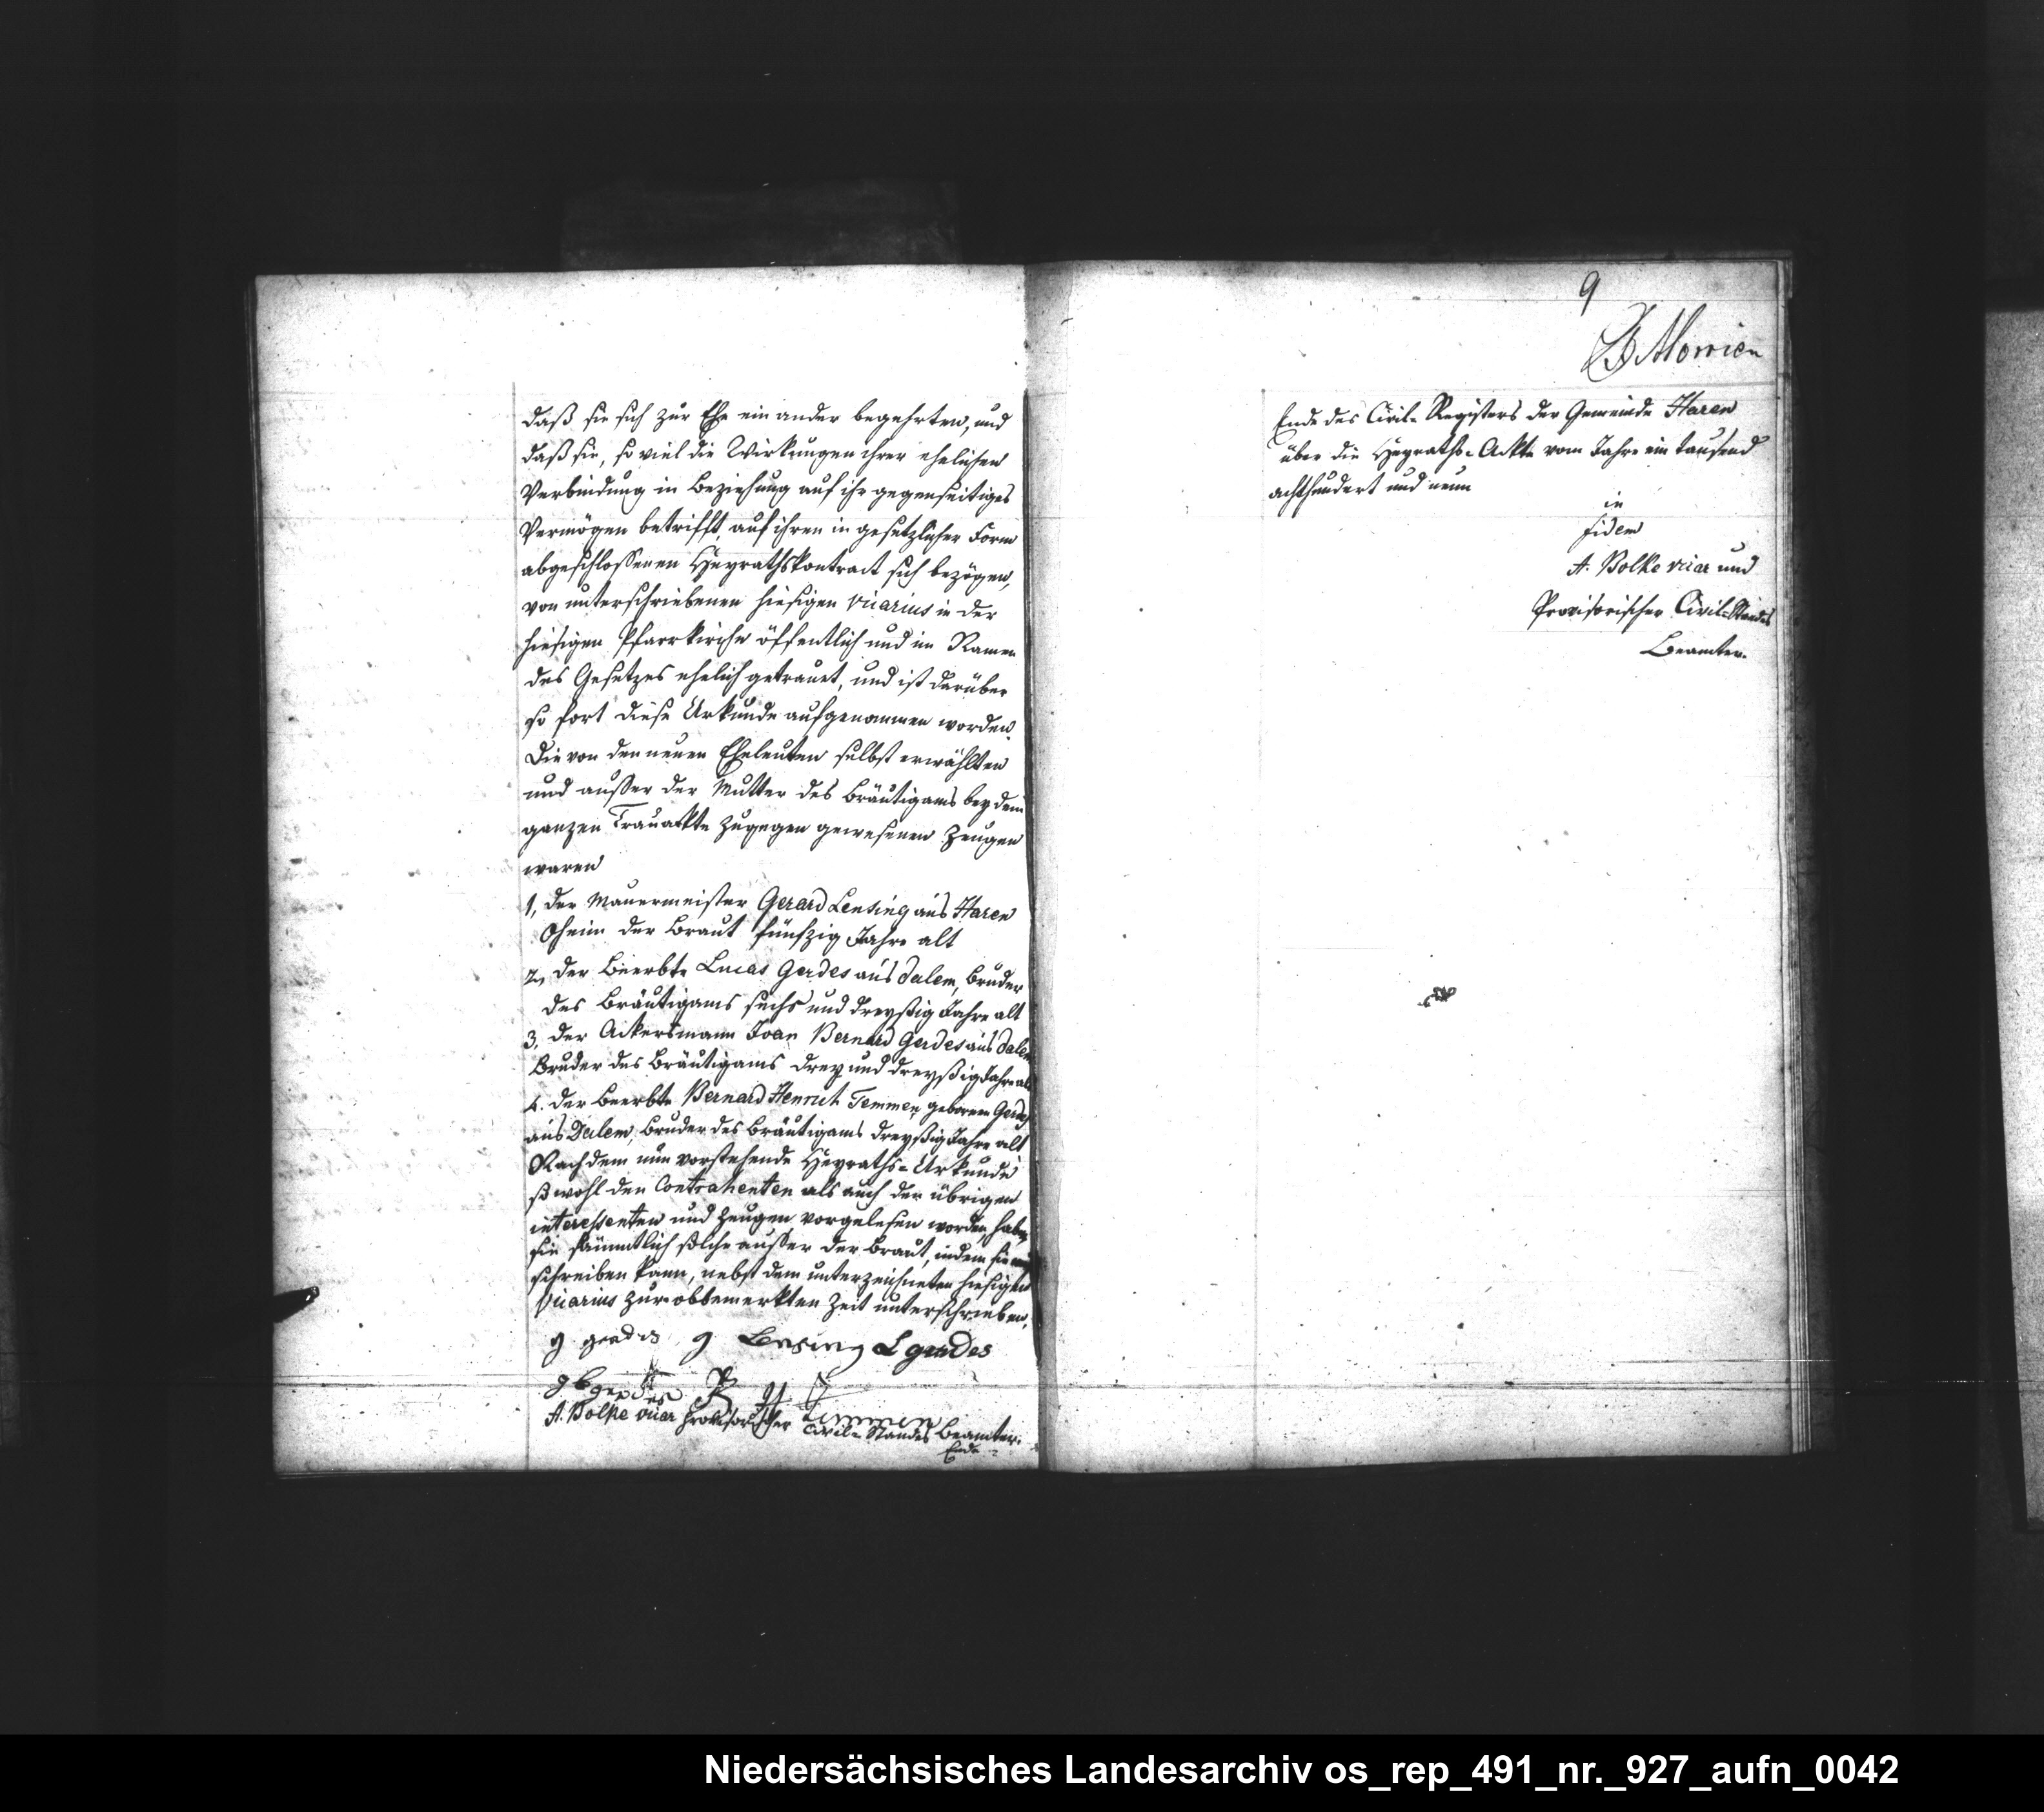 daß sie sich zur Ehe ein ander begehrten, und
daß sie, so viel die Wirkungen ihrer ehelichen
Verbindung in Beziehung auf ihr gegenseitiges
Vermögen betrifft, auf ihren in gesetzlicher Form
abgeschlossenen Heyrathskontract sich bezögen,
von unterschriebenen hiesigen Vicarius in der
hiesigen Pfarrkirche öffentlich und im Namen
des Gesetzes ehelich getrauet, und ist darüber
so fort diese Urkunde aufgenommen worden.
Die von den neuen Eheleuten selbst erwählten
und ausser der Mutter des Bräutigams bey dem
ganzen Trauackte zugegen gewesenen Zeugen
waren
1, der Mauermeister Gerard Lensing aus Haren
Oheim der Braut fünfzig Jahre alt
2, der Beerbte Lucas Gerdes aus Dalem, Bruder
des Bräutigams sechs und dreyßig Jahre alt
3, der Ackersmann Joan Bernard Gerdes aus Dalem
Bruder des Bräutigams drey und dreyßig Jahre alt
4. der Beerbte Bernard Henrich Temmen geborner Gerdes
aus Dalem, Bruder des Bräutigams dreyßig Jahre alt
Nachdem nun vorstehende Heyraths-Urkunde
sowohl den Contrahenten als auch den übrigen
interessenten und Zeugen vorgelesen worden, haben
sie sämmtlich solche ausser der Braut, indem sie
schreiben kann, nebst dem unterzeichneten hiesigen
Vicarius zur obbemerkten Zeit unterschrieben.
g gerdes g Lensing L gerdes
g b gerdes Temmen
A. Bolke vicar Provisorischer Civil-Standes Beamter.
Ende
9
Morrien
Ende des Civil-Registers der Gemeinde Haren
über die Heyraths-Ackte vom Jahre ein tausend
achthundert und neun
in
fidem
A. Bolke vicar und
Provisorischer Civil-Standes
Beamter.
Niedersächsisches Landesarchiv os_rep_491_nr._927_aufn_0042